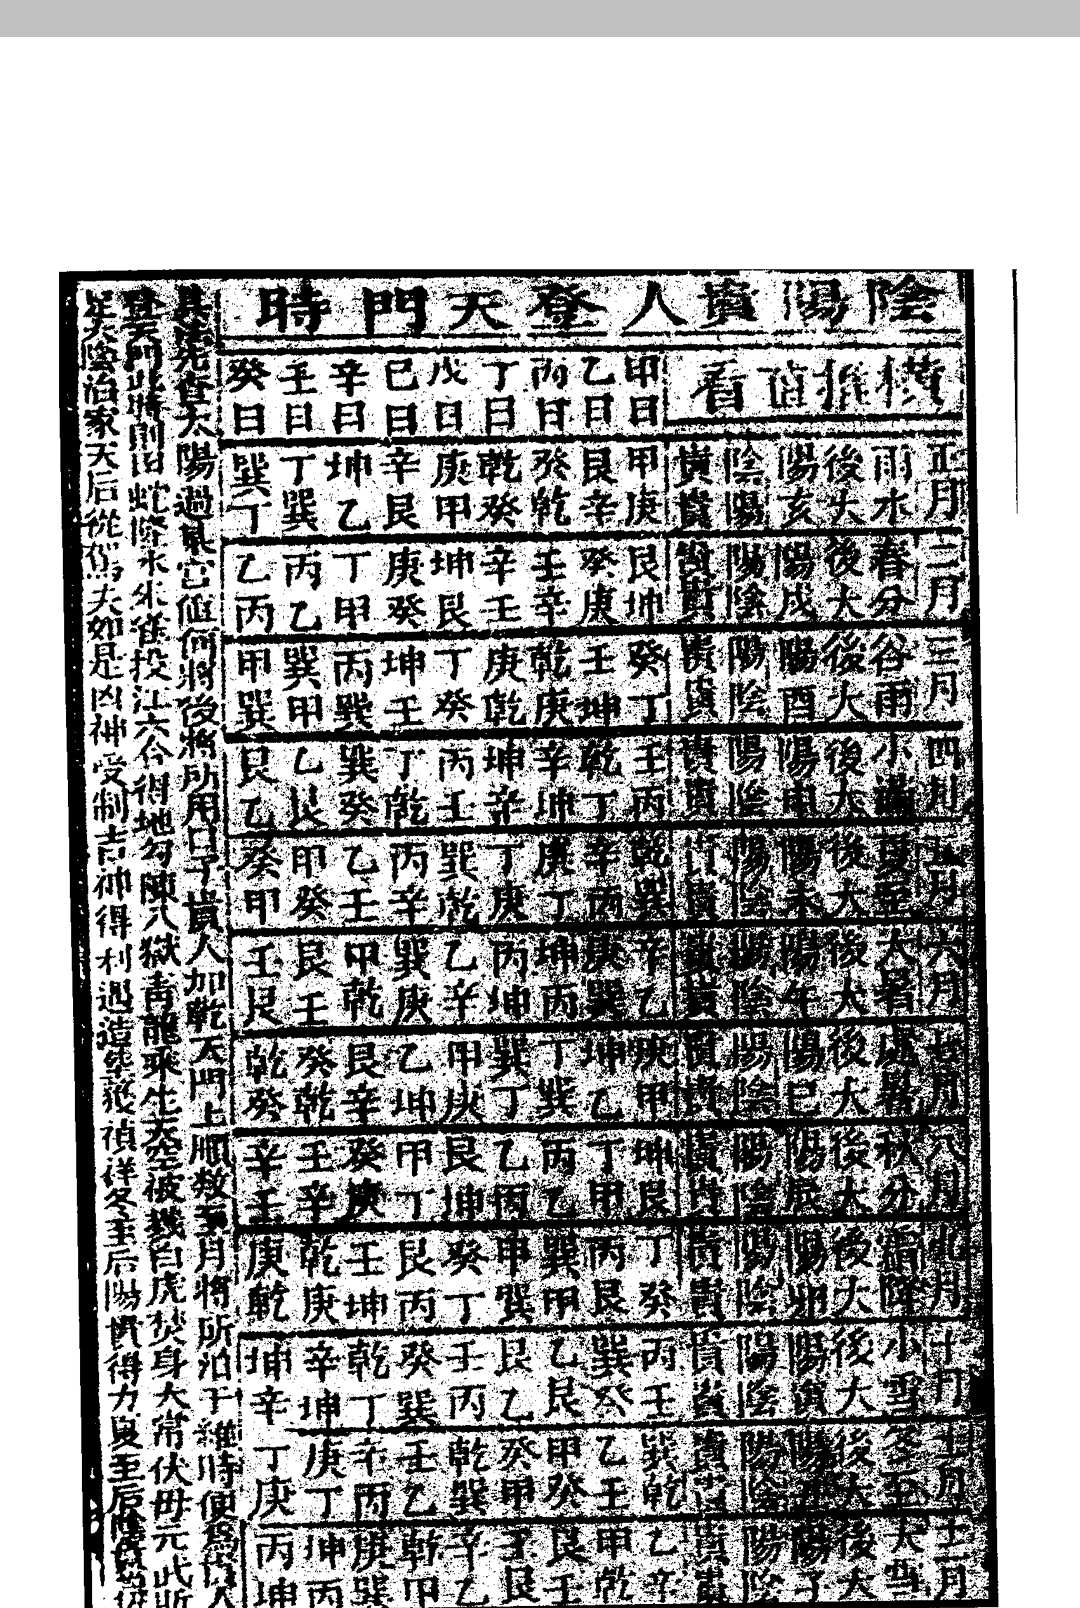 陰陽貴人登天門時
橫推直看
甲日 乙日 丙日 丁日 戊日 己日 辛日 壬日 癸日
正月 雨水後 太陽亥 陰貴 陽貴 甲庚 艮辛 癸乾 乾癸 庚甲 辛艮 坤乙 丁巽 巽丁
二月 春分後 太陽戌 陽貴 陰貴 艮坤 癸庚 壬辛 辛壬 坤艮 庚癸 丁甲 丙乙 乙丙
三月 谷雨後 太陽酉 陽貴 陰貴 癸丁 壬坤 乾庚 庚乾 丁癸 坤壬 丙巽 巽甲 甲巽
四月 小滿後 太陽申 陽貴 陰貴 壬丙 乾丁 辛坤 坤辛 丙壬 丁乾 巽癸 乙艮 艮乙
五月 夏至後 太陽未 陽貴 陰貴 乾巽 辛丙 庚丁 丁庚 巽乾 丙辛 乙壬 甲癸 癸甲
六月 大暑後 太陽午 陽貴 陰貴 辛乙 庚巽 坤丙 丙坤 乙辛 巽庚 甲乾 艮壬 壬艮
七月 處暑後 太陽巳 陽貴 陰貴 庚甲 坤乙 丁巽 巽丁 甲庚 乙坤 艮辛 癸乾 乾癸
八月 秋分後 太陽辰 陽貴 陰貴 坤艮 丁甲 丙乙 乙丙 艮坤 甲丁 癸庚 壬辛 辛壬
九月 霜降後 太陽卯 陽貴 陰貴 丁癸 丙艮 巽甲 甲巽 癸丁 艮丙 壬坤 乾庚 庚乾
十月 小雪後 太陽寅 陽貴 陰貴 丙壬 巽癸 乙艮 艮乙 壬丙 癸巽 乾丁 辛坤 坤辛
十一月 冬至後 太陽丑 陽貴 陰貴 巽乾 乙壬 甲癸 癸甲 乾巽 壬乙 辛丙 庚丁 丁庚
十二月 大雪後 太陽子 陽貴 陰貴 乙辛 甲乾 艮壬 壬艮 辛乙 乾甲 庚巽 坤丙 丙坤
其法先查太陽過氣宮值何將後將所用日子貴人加乾天門上順數至月將所泊干維時便為貴人
登天門此時則由蛇隆水朱雀投江六合得地勾陳入獄青龍乘生天空被擒白虎焚身太常伏毋元此斯
足太陰治家天后從駕夫如是凶神受制吉神得利遇造葬猴禎祥冬至后陽貴得力夏至后陰貴